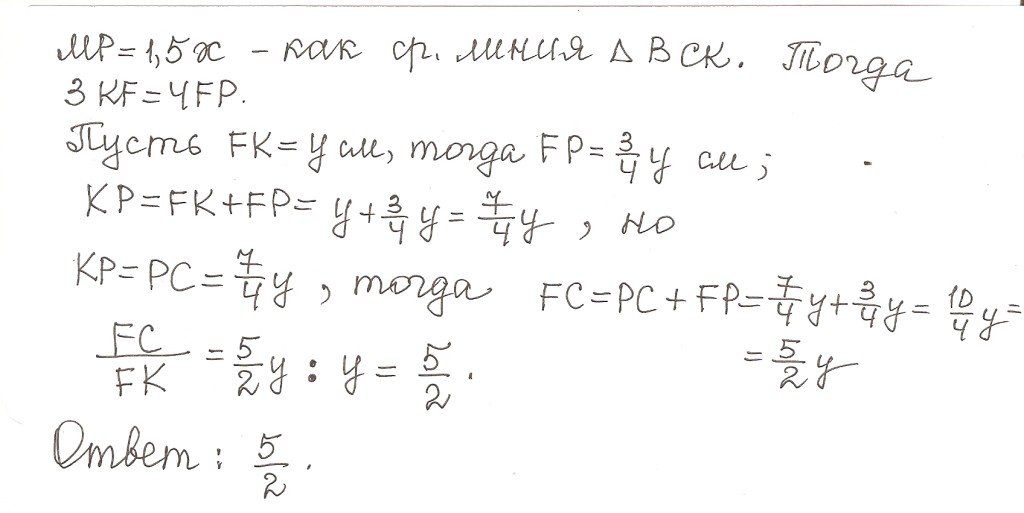 MP=1,5x - как ср. линия Δ BCK. Тогда
3 KF=4FP.
Пусть FK= y см, тогда FP= 3/4 y см;
KP=FK+FP= y+3/4 y= 7/4 y , но
KP=PC= 7/4 y , тогда FC=PC+FP= 7/4 y+3/4 y= 10/4 y=
= 5/2 y
FC/FK = 5/2 y : y = 5/2 .
Ответ: 5/2 .